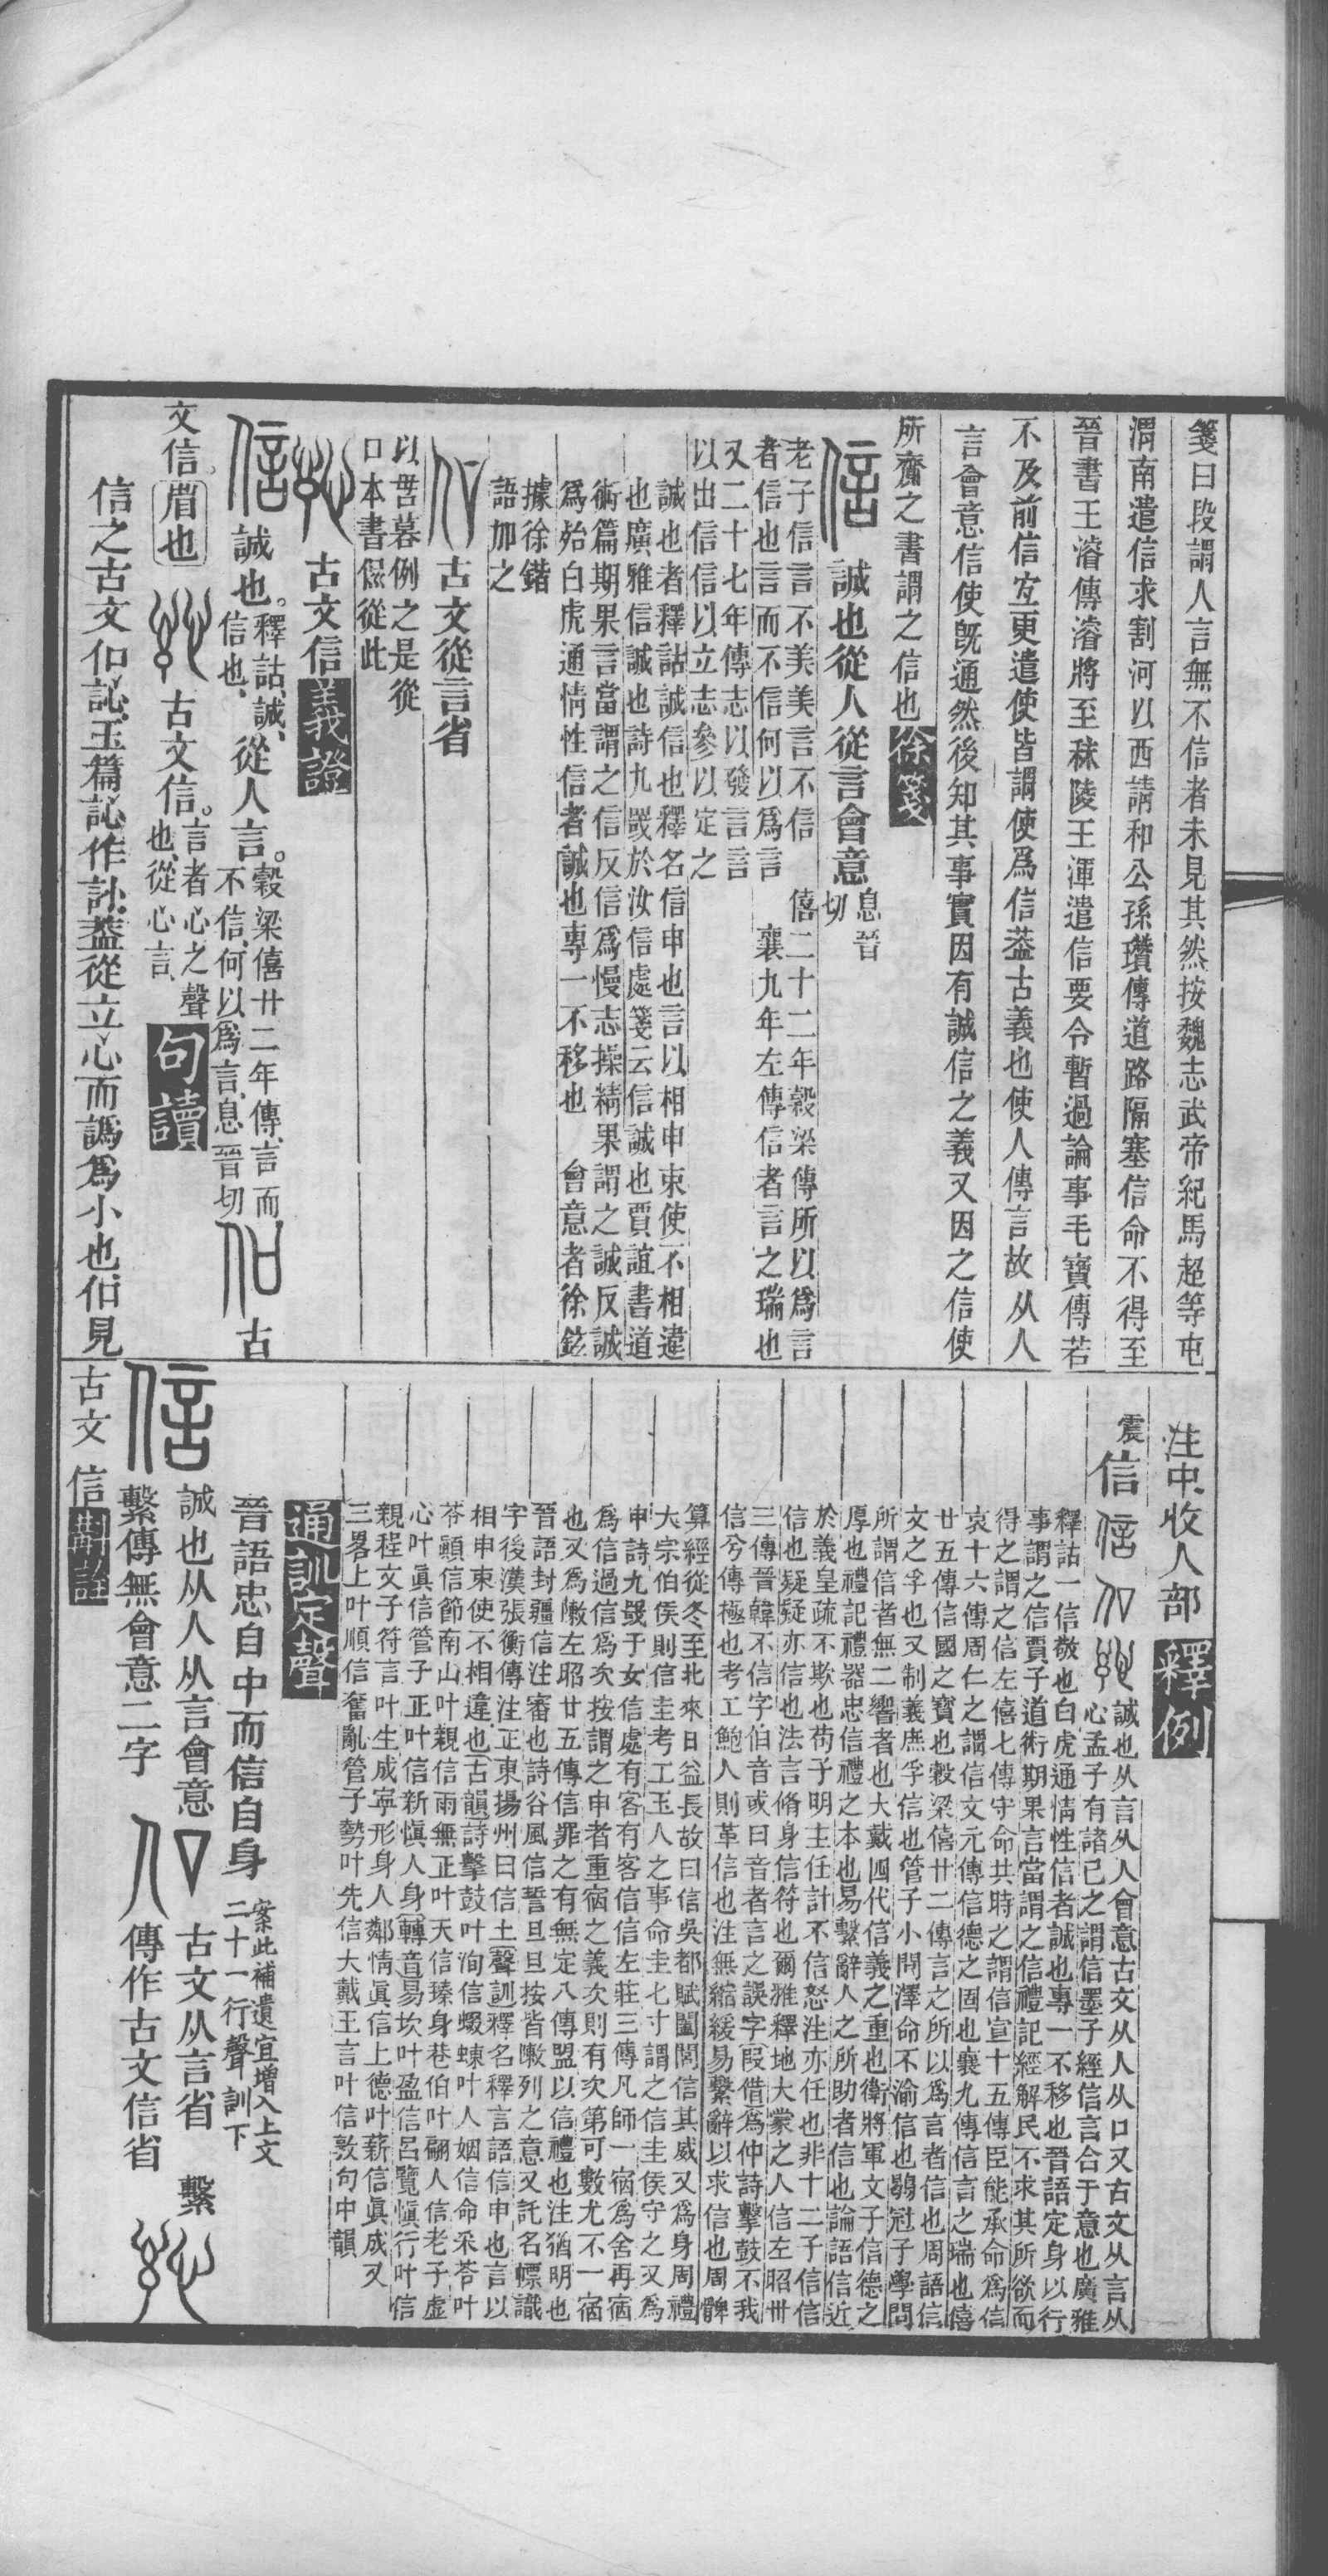 箋曰段謂人言無不信者未見其然按魏志武帝紀馬超等屯
渭南遣信求割河以西請和公孫瓚傳道路隔塞信命不得至
晉書王濬傳濬將至秣陵王渾遣信要令暫過論事毛寶傳若
不及前信宜更遣使皆謂使爲信葢古義也使人傳言故从人
言會意信使旣通然後知其事實因有誠信之義又因之信使
所齎之書謂之信也徐箋
信 誠也從人從言會意息晉切
老子信言不美美言不信 僖二十二年穀梁傳所以爲言
者信也言而不信何以爲言 襄九年左傳信者言之瑞也
又二十七年傳志以發言言
以出信信以立志參以定之
誠也者釋詁誠信也釋名信申也言以相申束使不相違
也廣雅信誠也詩九罭於汝信處箋云信誠也賈誼書道
術篇期果言當謂之信反信爲慢志操精果謂之誠反誠
爲殆白虎通情性信者誠也專一不移也 會意者徐鉉
據徐鍇
語加之
古文從言省
以㫺暮例之是從
口本書儑從此
古文信義證
信 誠也。釋詁、誠、信也、從人言。穀梁僖廿二年傳、言而不信、何以爲言、息晉切 古
文信。䀠也 古文信。言者心之聲也、從心言、句讀
信之古文㐰訫玉篇訫作訫葢從立心而譌爲小也㐰見
注中收人部釋例
震 信 誠也从言从人會意古文从人从口又古文从言从
心孟子有諸己之謂信墨子經信言合于意也廣雅
釋詁一信敬也白虎通情性信者誠也專一不移也晉語定身以行
事謂之信賈子道術期果言當謂之信禮記經解民不求其所欲而
得之謂之信左僖七傳守命共時之謂信宣十五傳臣能承命爲信
哀十六傳周仁之謂信文元傳信德之固也襄九傳信言之瑞也僖
廿五傳信國之寶也穀梁僖廿二傳言之所以爲言者信也周語信
文之孚也又制義庶孚信也管子小問澤命不渝信也鶡冠子學問
所謂信者無二響者也大戴四代信義之重也衛將軍文子信德之
厚也禮記禮器忠信禮之本也易繫辭人之所助者信也論語信近
於義皇疏不欺也荀子明主任計不信怒注亦任也非十二子信信
信也疑疑亦信也法言脩身信符也爾雅釋地大蒙之人信左昭卅
三傳晉韓不信字伯音或曰音者言之誤字叚借爲仲詩擊鼓不我
信兮傳極也考工鮑人則革信也注無縮緩易繫辭以求信也周髀
算經從冬至北來日益長故曰信吳都賦闓闊信其威又爲身周禮
大宗伯侯則信圭考工玉人之事命圭七寸謂之信圭侯守之又爲
申詩九罭于女信處有客有客信信左莊三傳凡師一宿爲舍再宿
爲信過信爲次按謂之申者重宿之義次則有次第可數尤不一宿
也又爲敶左昭廿五傳信罪之有無定八傳盟以信禮也注猶明也
晉語封疆信注審也詩谷風信誓旦旦按皆敶列之意又託名幖識
字後漢張衡傳注正東揚州曰信土聲訓釋名釋言語信申也言以
相申束使不相違也古韻詩擊鼓叶洵信蝃蝀叶人姻信命采苓叶
苓顚信節南山叶親信雨無正叶天信臻身巷伯叶翩人信老子虛
心叶眞信管子正叶信新愼人身轉音易坎叶盈信呂覽愼行叶信
親程文子符言叶生成寜形身人鄰情眞信上德叶薪信眞成又
三畧上叶順信奮亂管子勢叶先信大戴王言叶信敦句中韻
通訓定聲
晉語忠自中而信自身案此補遺宜增入上文二十一行聲訓下
信 誠也从人从言會意 古文从言省 繫
繫傳無會意二字 傳作古文信省
古文信斠詮